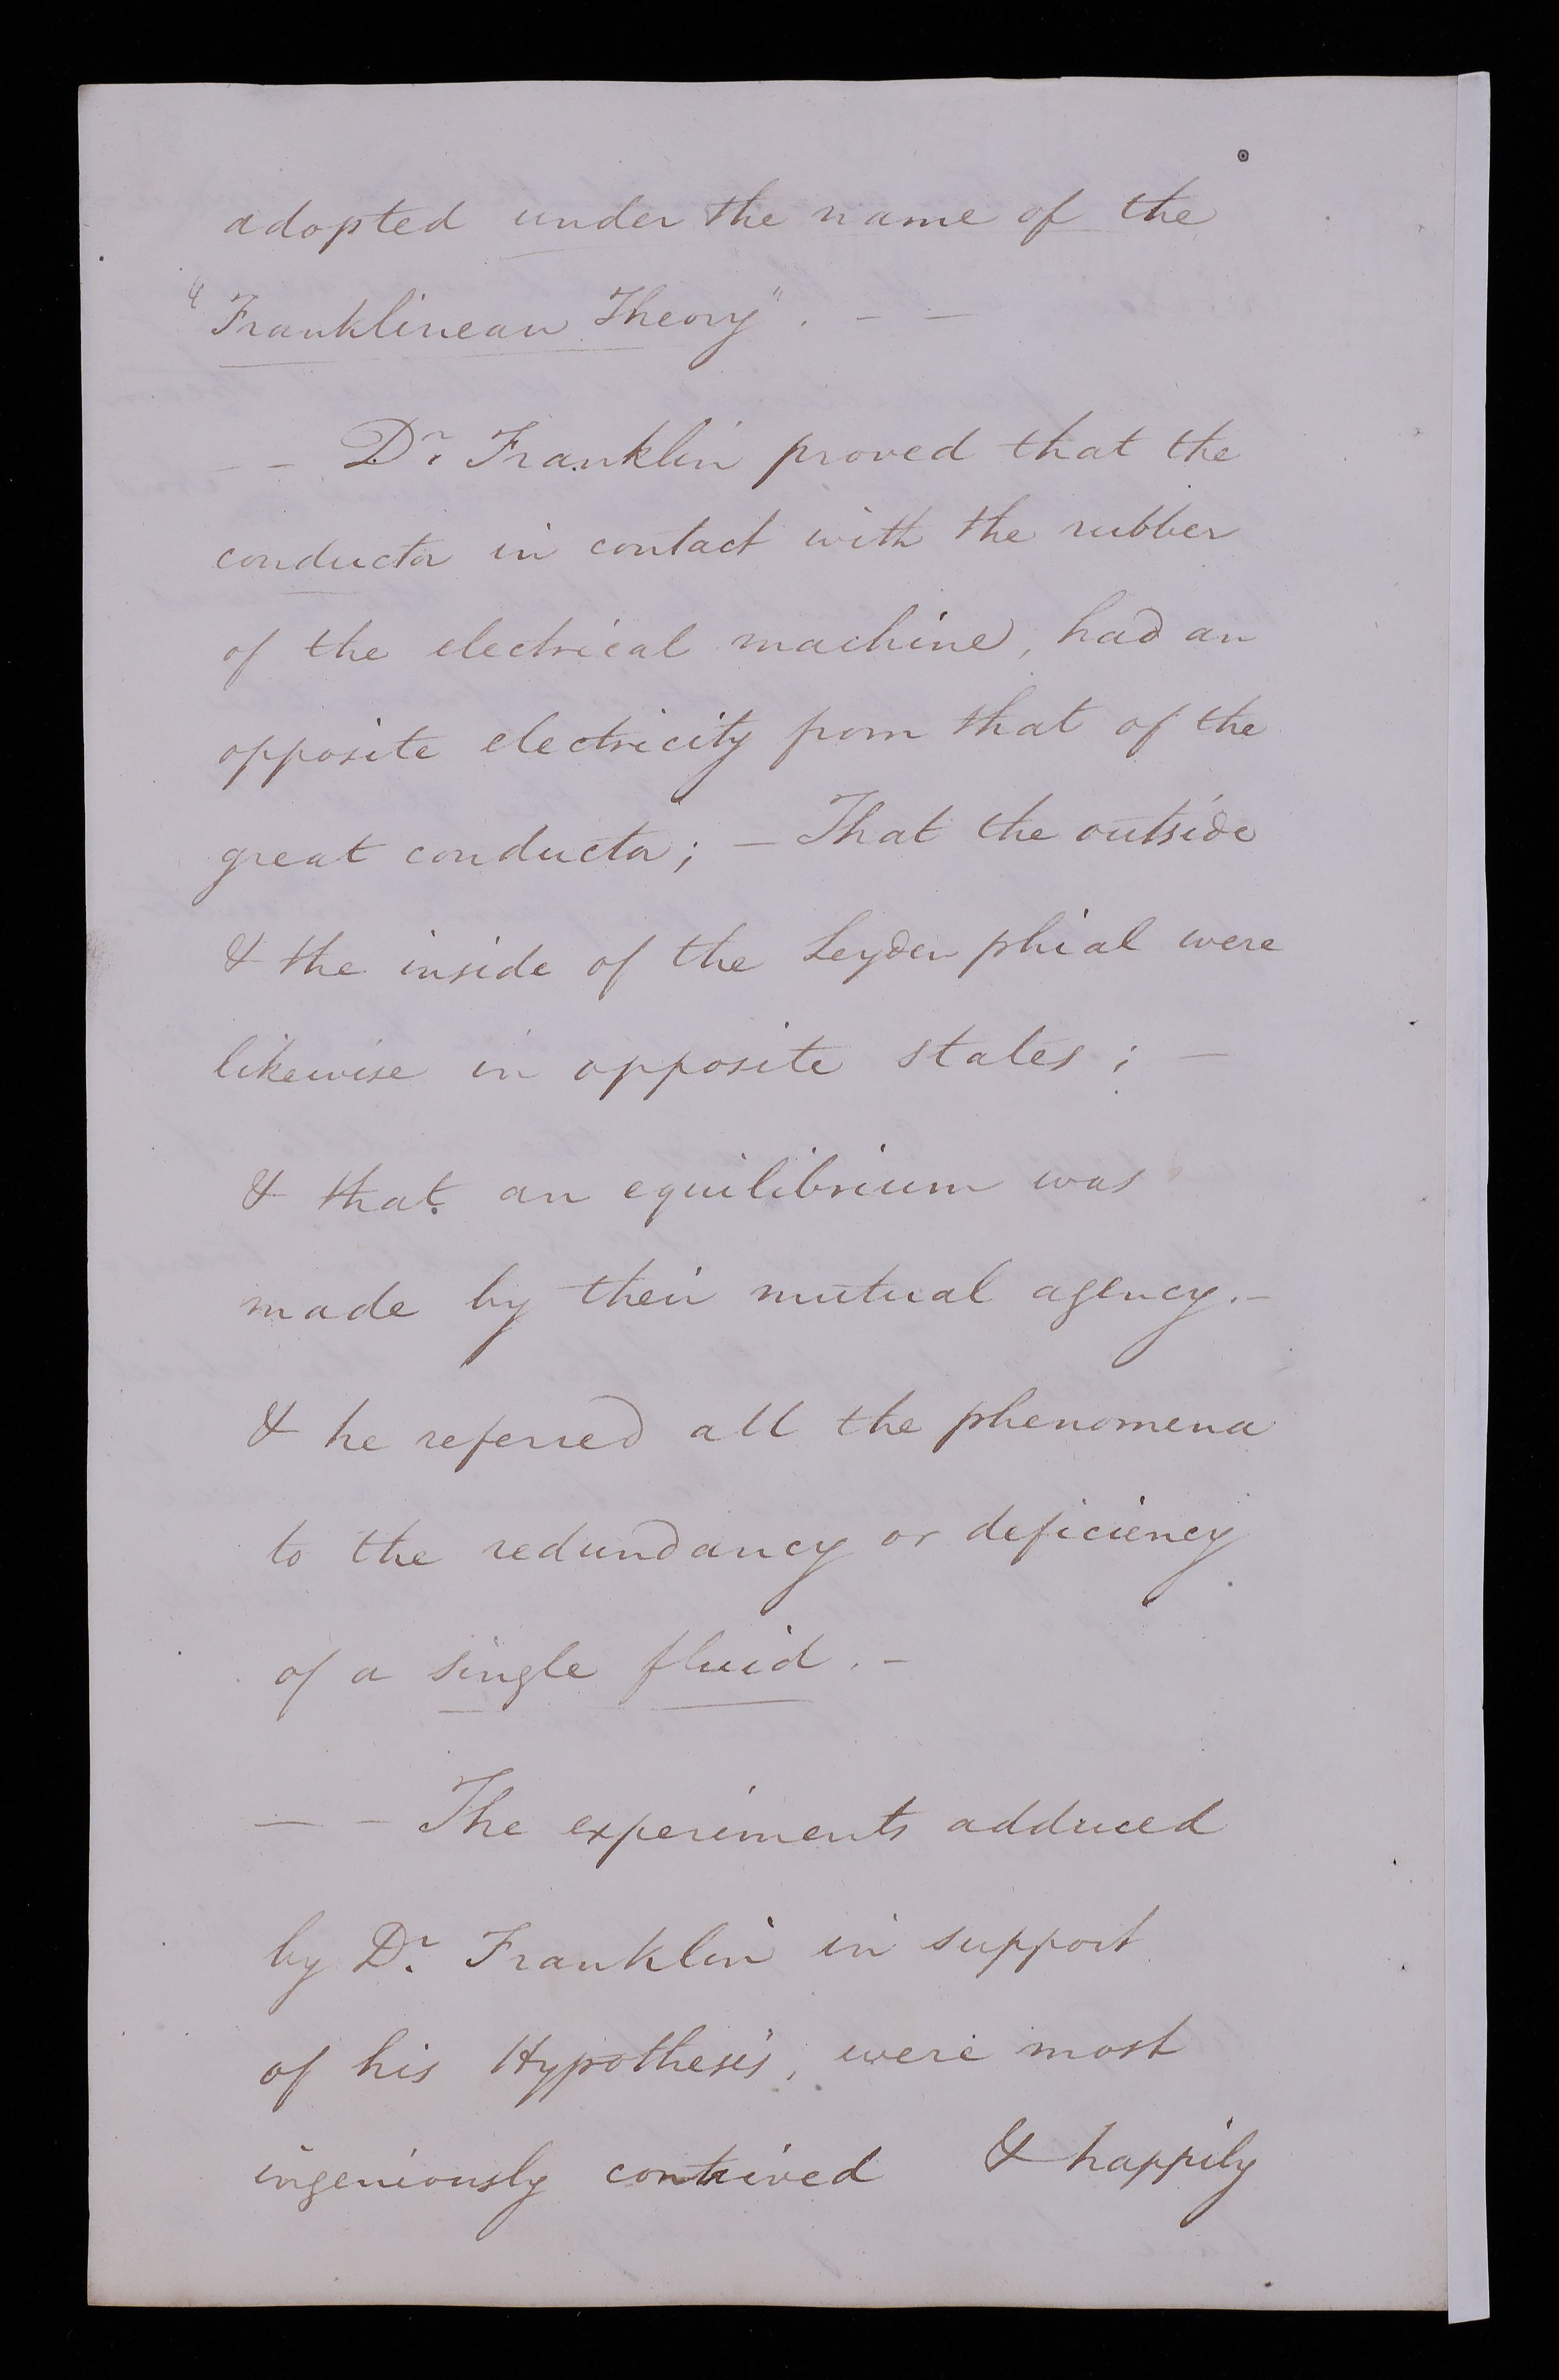 adopted under the name of the
"Franklinean Theory". - -
- - Dr. Franklin proved that the
conductor in contact with the rubber
of the electrical machine, had an
opposite electricity from that of the
great conductor; - That the outside
& the inside of the Leyden phial were
likewise in opposite states; -
& that an equilibrium was
made by their mutual agency. -
& he referred all the phenomena
to the redundancy or deficiency
of a single fluid. -
- - The experiments adduced
by Dr. Franklin in support
of his Hypothesis, were most
ingeniously contrived & happily